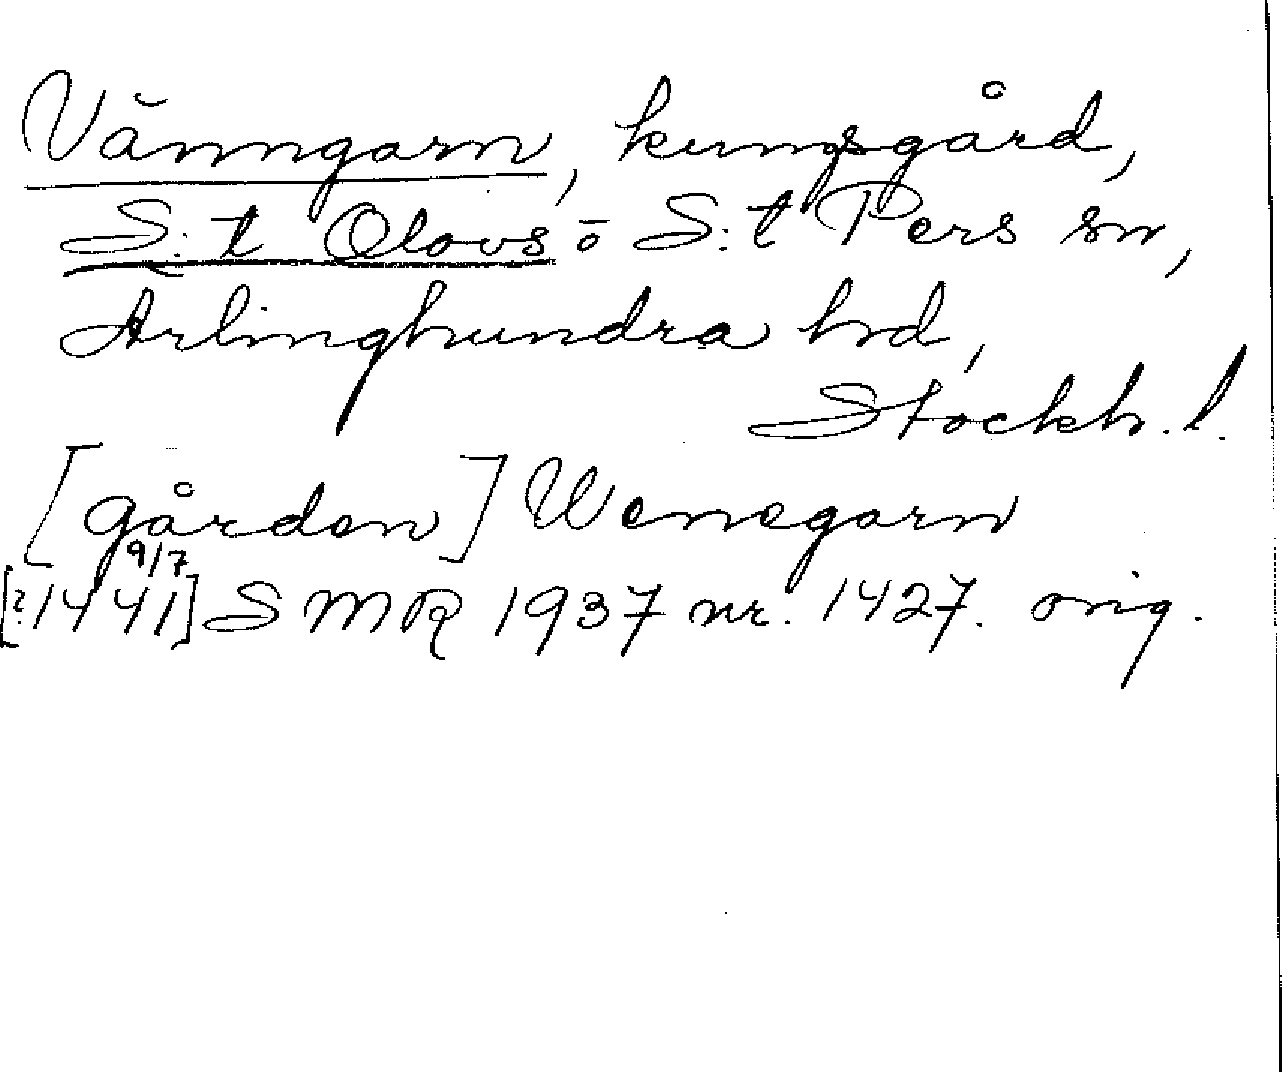 Vänngarn, kungsgård,
S:t Olovs o S:t Pers sn,
Ärlinghundra hd,
Stockh. l.
[gården] Wenegarn
9/7
[?1441] SMR 1937 nr. 1427. orig.